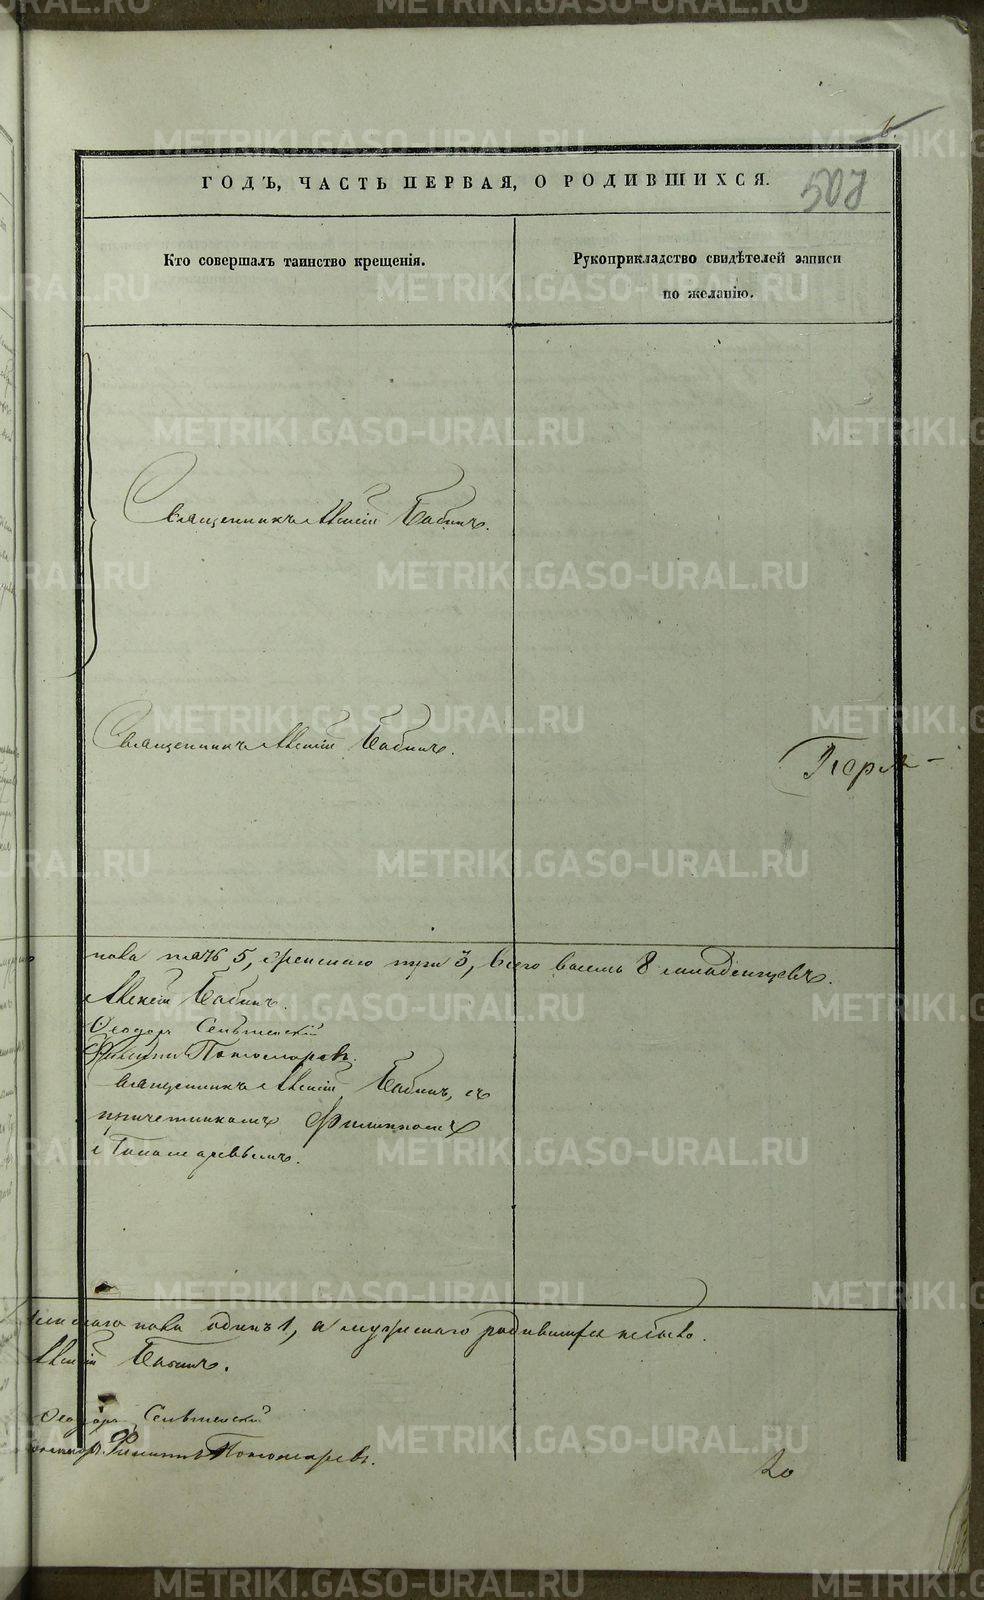 6.
ГОДЪ, ЧАСТЬ ПЕРВАЯ, О РОДИВШИХСЯ.
507
Кто совершалъ таинство крещенія.
Рукоприкладство свидѣтелей записи
по желанію.
Священникъ Алексій Бабинъ.
Священникъ Алексій Бабинъ.
пола пять 5, женскаго три 3, всего восемь 8 младенцевъ.
Алексій Бабинъ.
Ѳеодоръ
Филиппъ Пономаревъ.
Священникъ Алексій Бабинъ, съ
причетникомъ Филиппомъ
Пономаревымъ.
женскаго пола одинъ 1, а мужескаго родившихся не было.
Алексій Бабинъ.
Ѳеодоръ
Филиппъ Пономаревъ.
METRIKI.GASO-URAL.RU